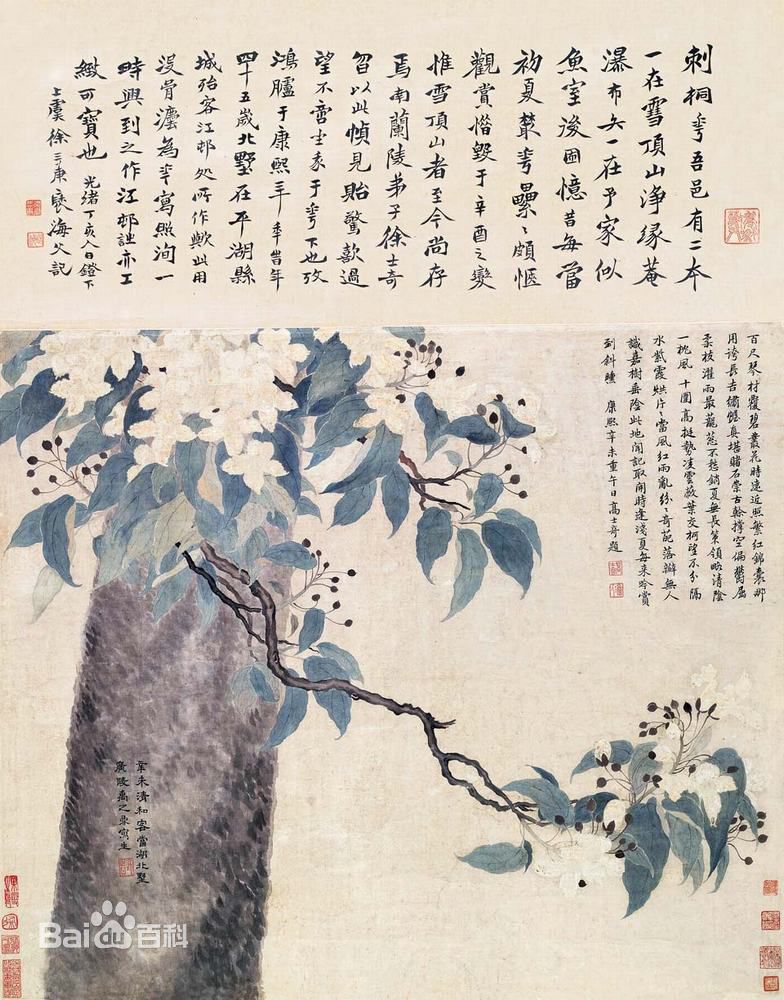 刺桐華吾邑有二本
一在雪頂山淨緣菴
瀑布矢一在予家似
魚室後圃憶昔每當
初夏叢華纍〻頗愜
觀賞惜毀于辛酉之變
惟雪頂山者至今尚存
焉南蘭陵弟子徐士奇
以此幀見貽驚歎過
望不啻坐我于華下也攷
鴻臚于康熙辛未當年
四十五歲北墅在平湖縣
城殆客江邨處所作歟此用
沒骨灋為華寫照洵一
時興到之作江邨詩亦工
緻可寶也 光緒丁亥人日鐙下
上虞徐三庚褎海父記
百尺琴材覆碧叢花時遠近照繁紅錦囊那
用誇長吉繡幄真堪賭石崇古幹撐空偏鬱屈
柔枝濯雨最蘢葱不愁銷夏無長策領略清陰
一枕風 十圍高挺勢凌雲嫩葉交柯望不分隔
水紫霞烘片〻當風紅雨亂紛〻奇葩落瓣無人
識嘉樹垂陰此地聞記取開時逢淺夏每來吟賞
到斜曛 康熙辛未重午日高士奇題
辛未清和客當湖北墅
廣陵禹之鼎寫生
Baidu百科